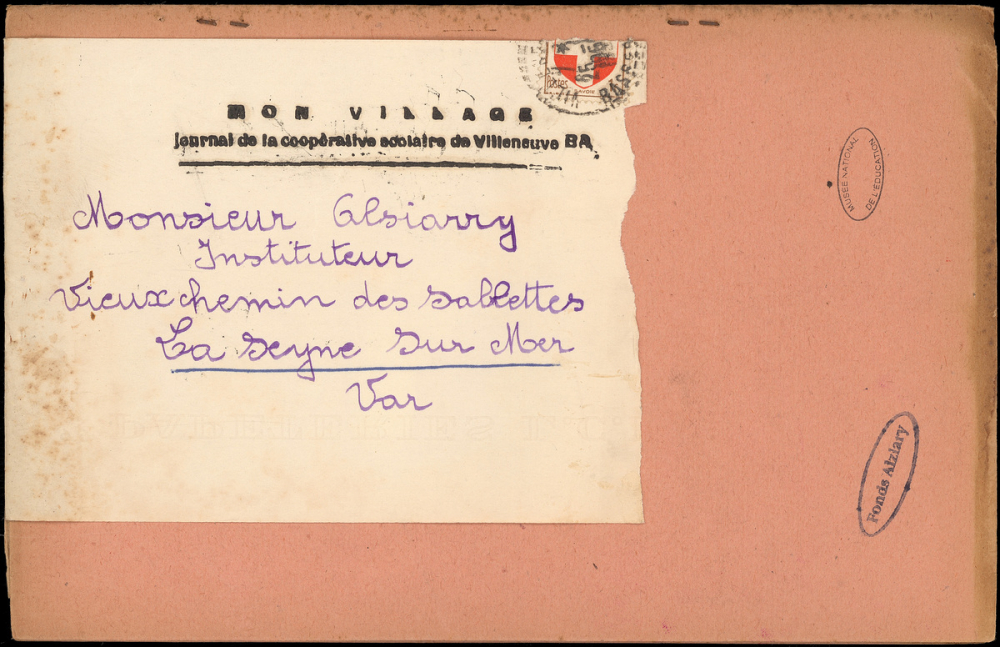 MON VILLAGE
journal de la coopérative scolaire de Villeneuve BA
Monsieur Alsiarry
Instituteur
Vieux chemin des Sablettes
La Seyne sur Mer
Var
Postes
MUSÉE NATIONAL
DE L'ÉDUCATION
Fonds Alziary